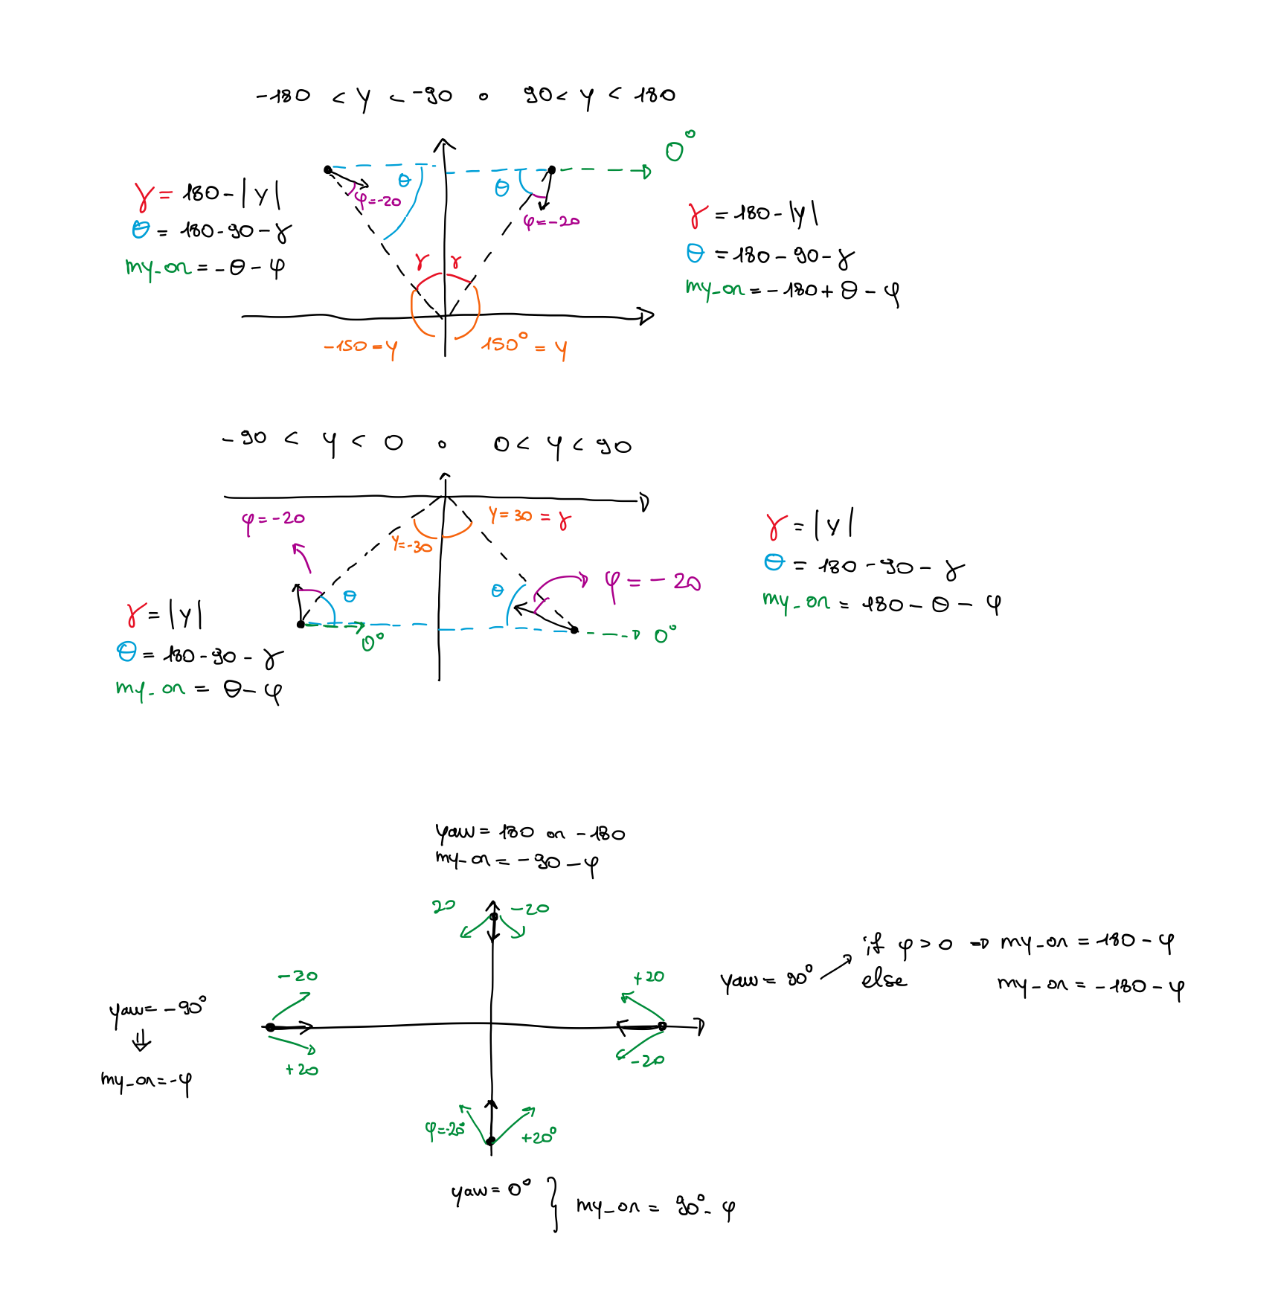 -180 < y < -90 o 90 < y < 180
0°
θ
θ
φ=-20
φ=-20
γ = 180-|y|
θ = 180-90-γ
my_or = -θ-φ
γ = 180-|y|
θ = 180-90-γ
my_or = -180+θ-φ
γ γ
-150=y
150° = y
-90 < y < 0 o 0 < y < 90
φ=-20
y=-30
y=30 = γ
θ
θ
φ = -20
0°
0°
γ = |y|
θ = 180-90-γ
my_or = θ-φ
γ = |y|
θ = 180-90-γ
my_or = 180-θ-φ
yaw = 180 or -180
my_or = -90-φ
20 -20
-20
+20
yaw = -90°
my_or = -φ
+20
-20
yaw = 90°
if φ>0 ⇒ my_or = 180-φ
else my_or = -180-φ
φ=-20°
+20°
yaw = 0° } my_or = 90°-φ